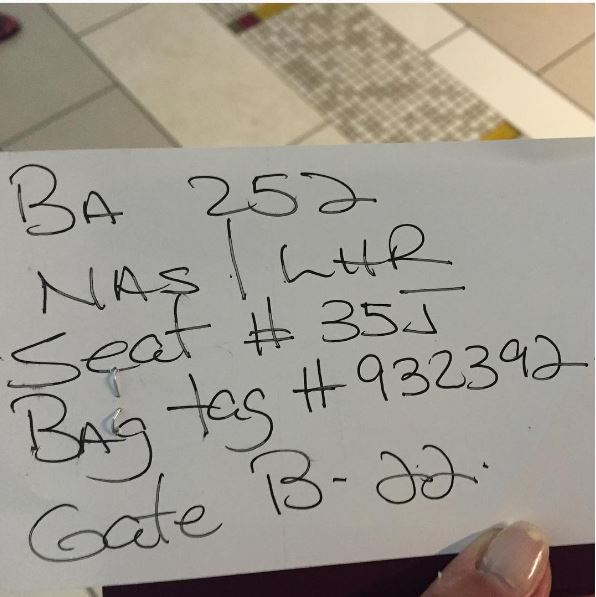 BA 252
NAS / LHR
Seat # 35J
BAg tag # 932392
Gate B-22.